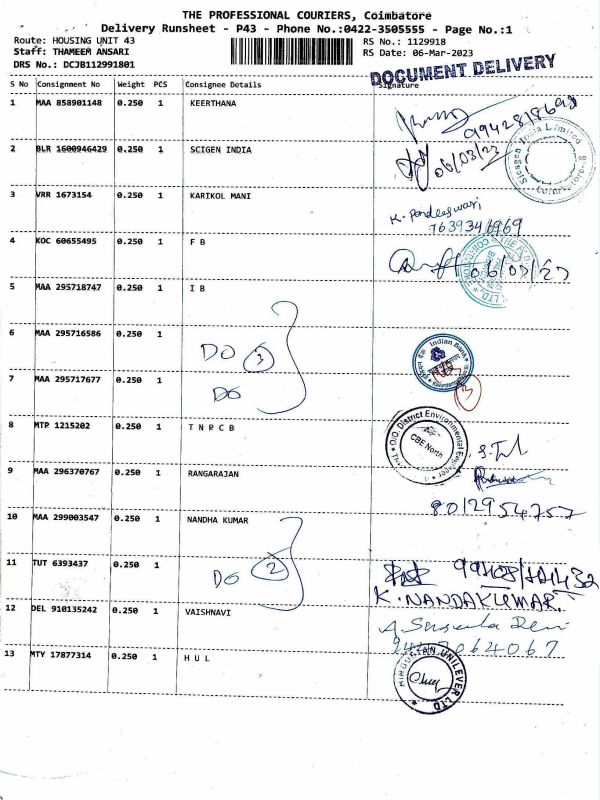 THE PROFESSIONAL COURIERS, Coimbatore
Delivery Runsheet - P43 - Phone No.:0422-3505555 - Page No.:1
Route: HOUSING UNIT 43 RS No.: 1129918
Staff: THAMEEM ANSARI RS Date: 06-Mar-2023
DRS No.: DCJB112991801
DOCUMENT DELIVERY
S No Consignment No Weight PCS Consignee Details Signature
1 MAA 858901148 0.250 1 KEERTHANA
2 BLR 1600946429 0.250 1 SCIGEN INDIA 06/03/23
3 VRR 1673154 0.250 1 KARIKOL MANI
K. Pandeeswari
7639346969
4 KOC 60655495 0.250 1 F B 06/03/23
5 MAA 295718747 0.250 1 I B
6 MAA 295716586 0.250 1
DO 3
Indian Bank
7 MAA 295717677 0.250 1
DO
3
8 MTP 1215202 0.250 1 T N P C B
O/O. District Environmental Engineer
CBE North
9 MAA 296370767 0.250 1 RANGARAJAN
8012954757
10 MAA 299003547 0.250 1 NANDHA KUMAR
11 TUT 6393437 0.250 1
DO 2
K. NANDAKUMAR.
12 DEL 910135242 0.250 1 VAISHNAVI
A Suseela Devi
13 MTY 17877314 0.250 1 H U L
HINDUSTAN UNILEVER LTD